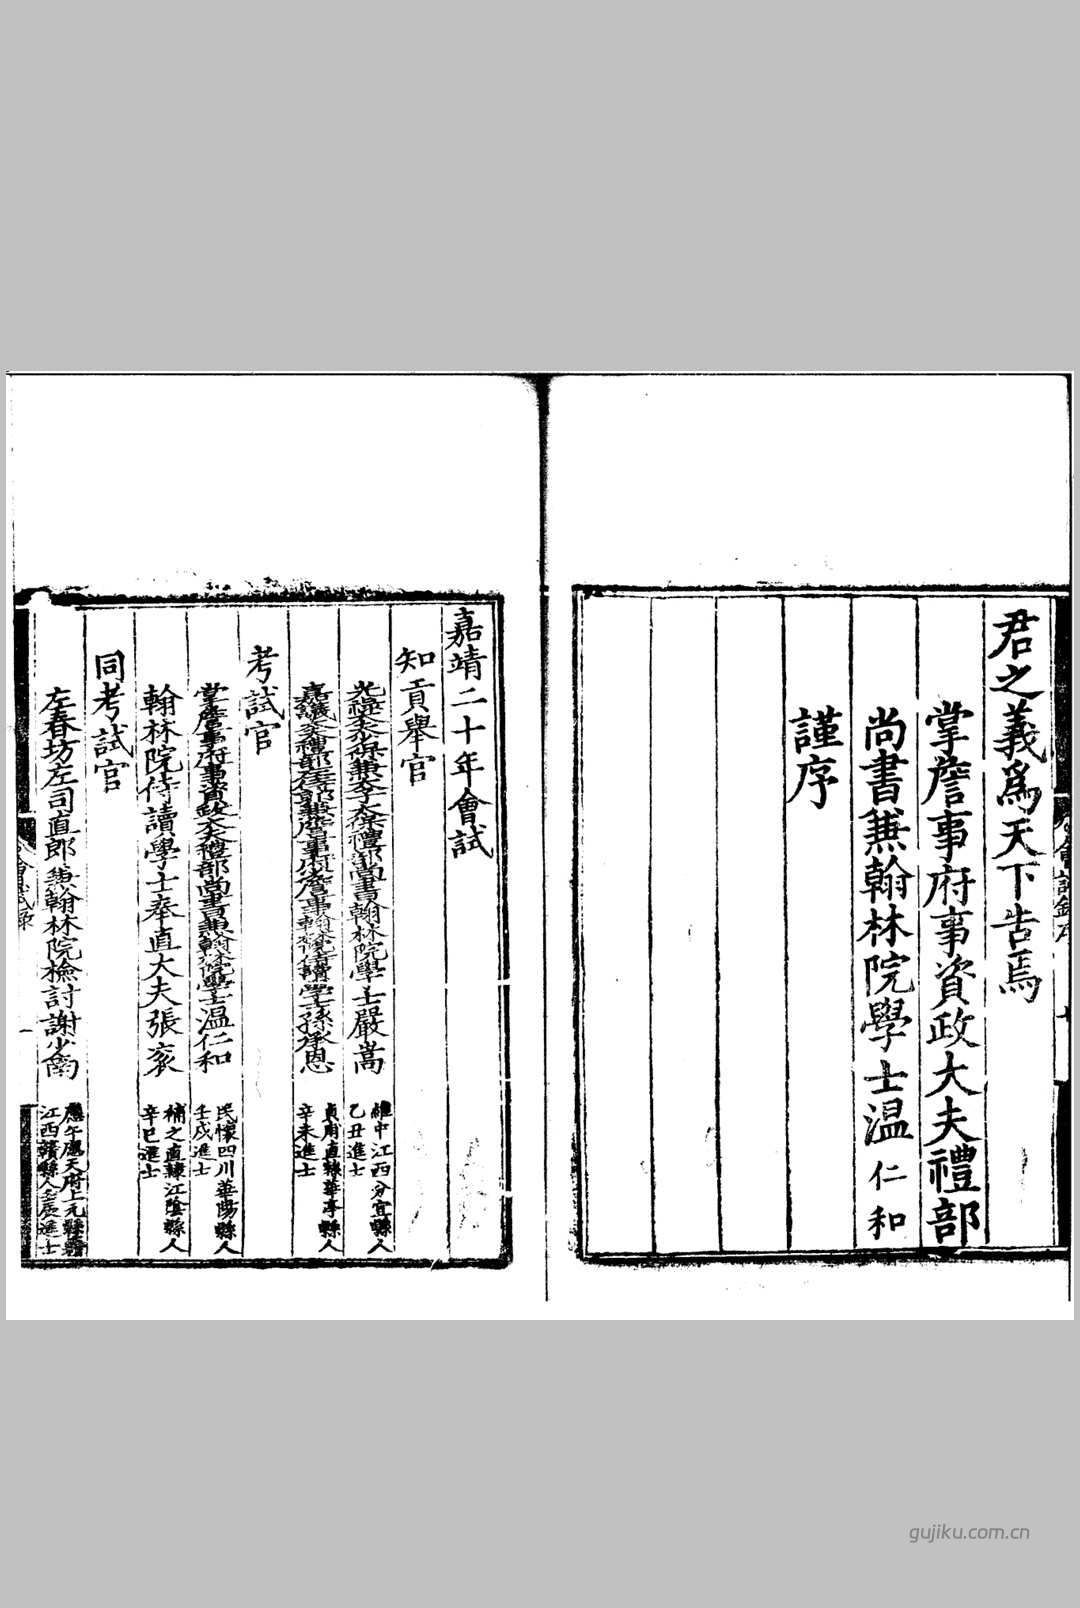 君之義爲天下告焉
掌詹事府事資政大夫禮部
尚書兼翰林院學士温仁和
謹序
嘉靖二十年會試
知貢舉官
光祿大夫少保兼太子太保禮部尚書翰林院學士嚴嵩
維中江西分宜縣人
乙丑進士
嘉議大夫禮部左侍郎兼詹事府詹事翰林院侍讀學士孫承恩
貞甫直隸華亭縣人
辛未進士
考試官
掌詹事府事資政大夫禮部尚書兼翰林院學士温仁和
民懷四川華陽縣人
壬戌進士
翰林院侍讀學士奉直大夫張衮
補之直隸江陰縣人
辛巳進士
同考試官
左春坊左司直郎兼翰林院檢討謝少南
應午應天府上元縣籍
江西贛縣人壬辰進士
會試录
gujiku.com.cn